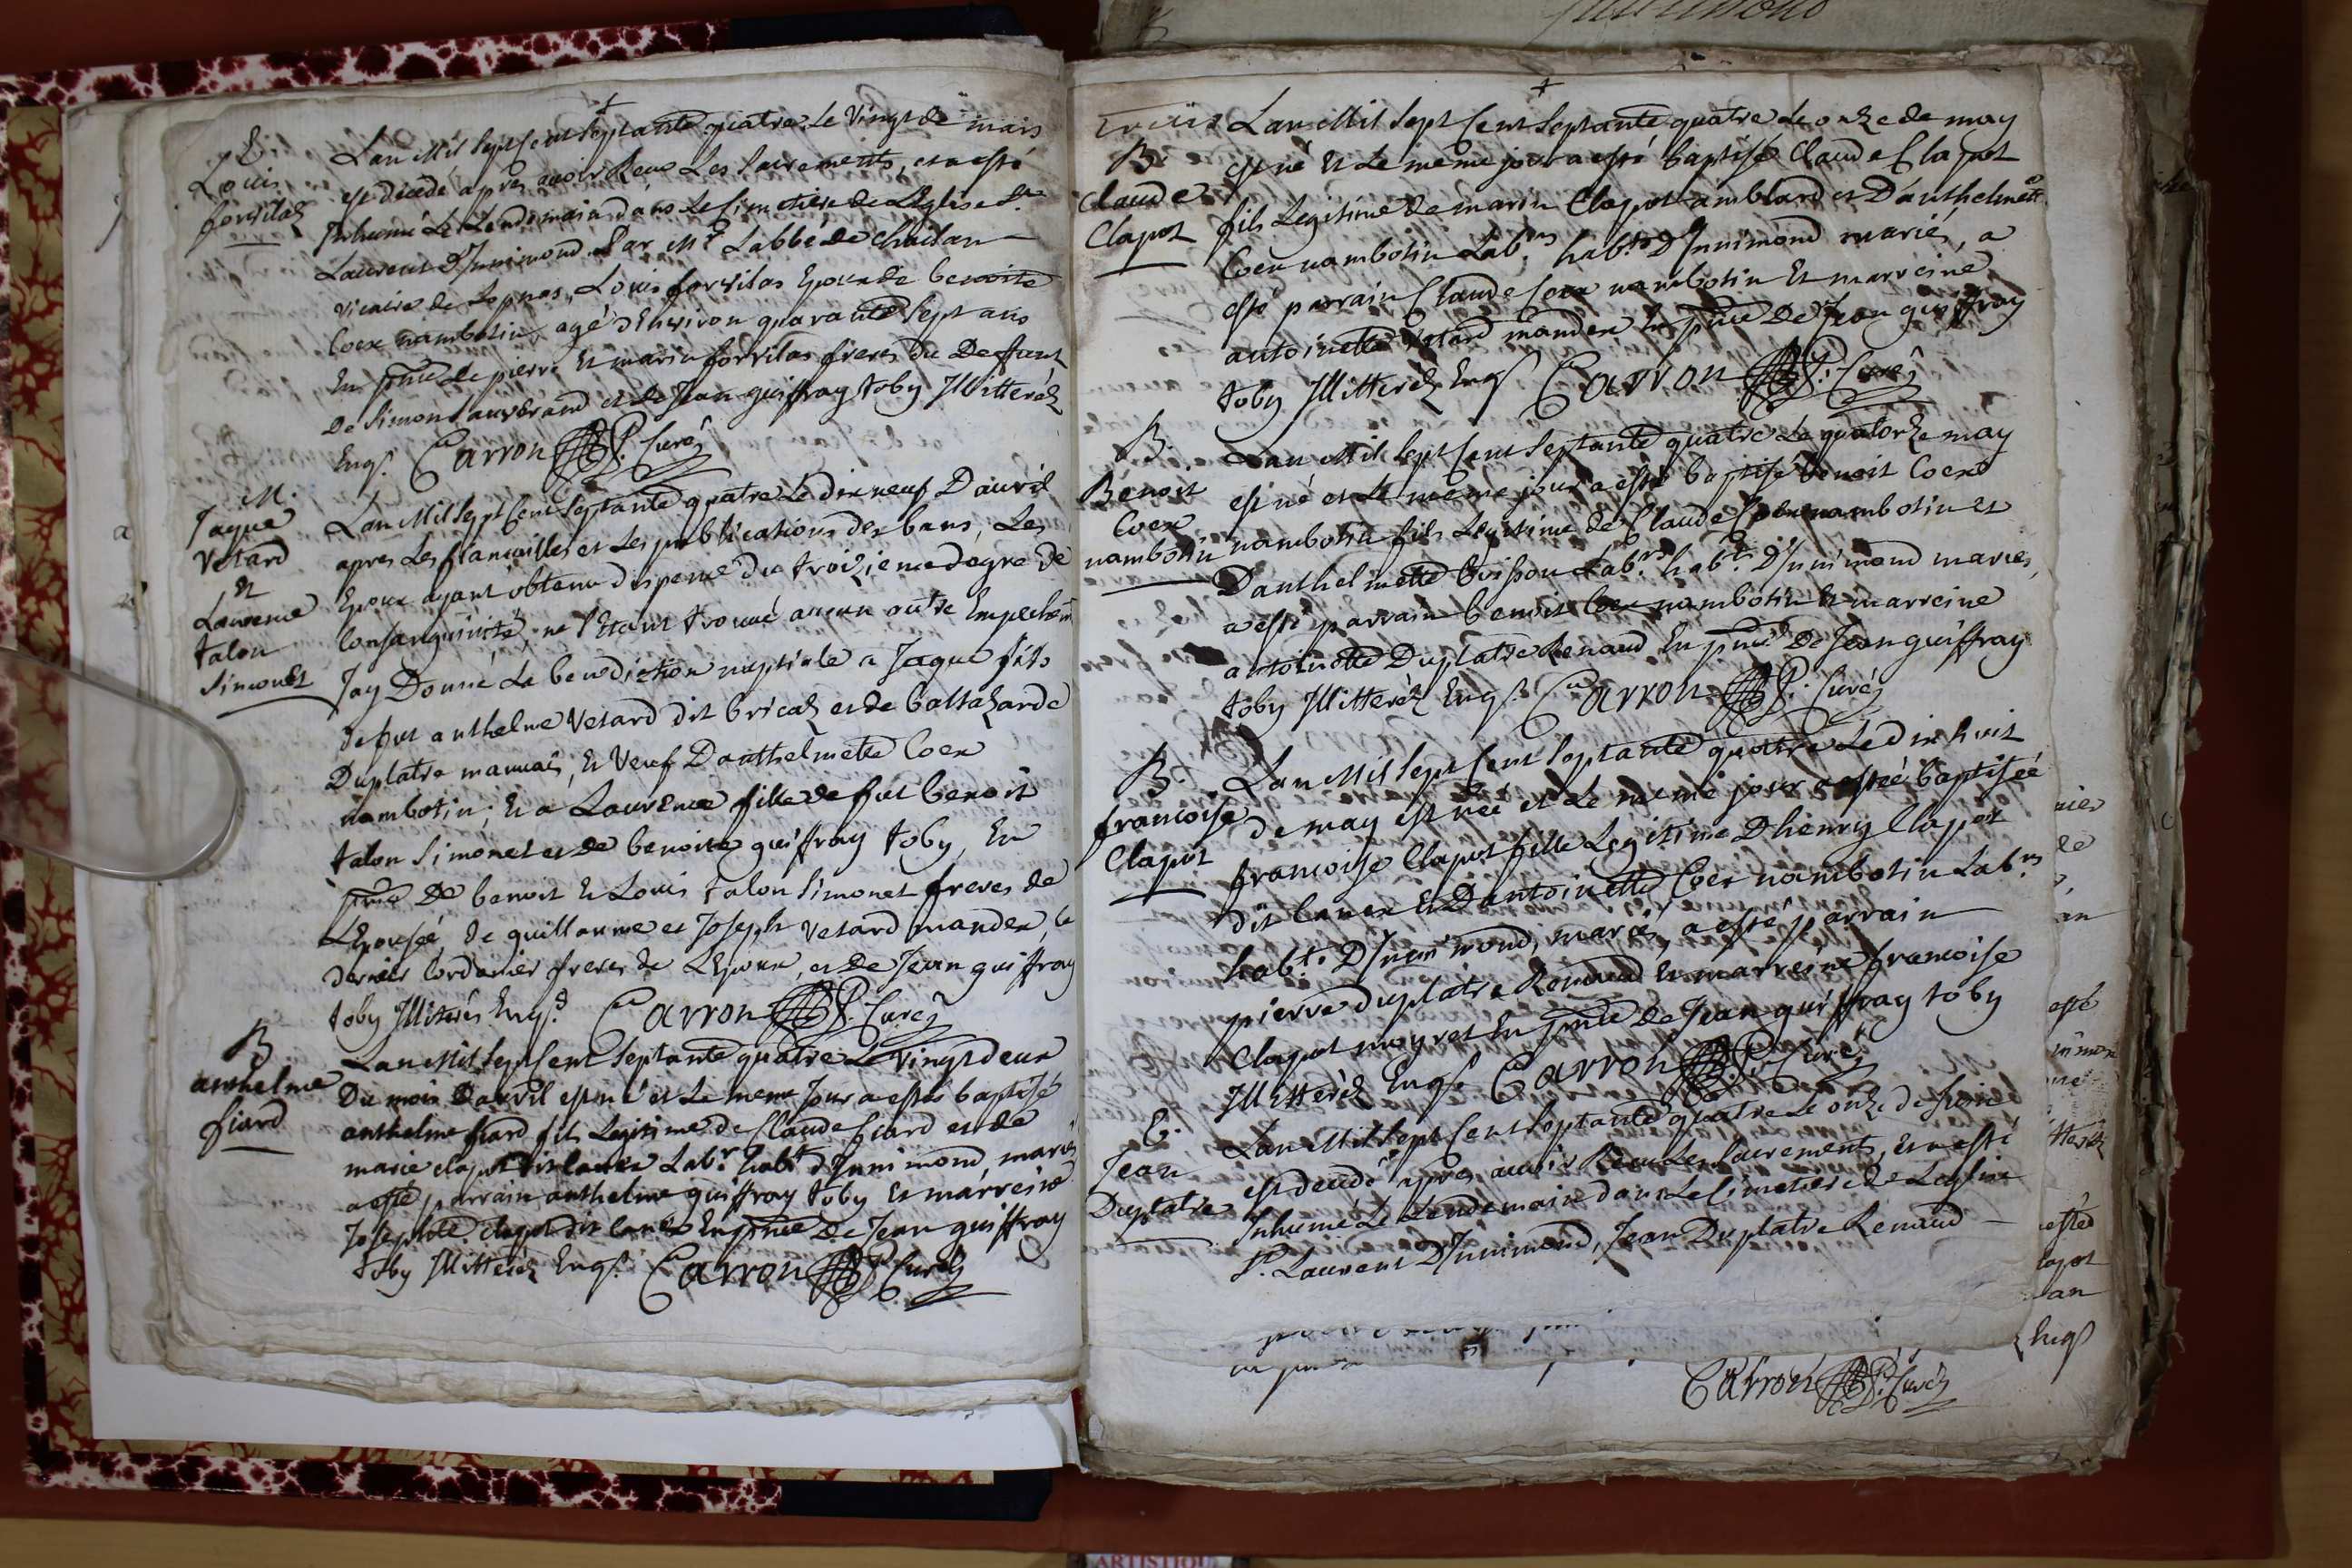 E
Louis
forvilaz
Lan Mil Sept Cent Septante quatre Le Vingt de mars
est decedé apres avoir Receu Les Sacrements, et a esté
Inhumé Le Lendemain dans Le Cimetiere de Leglise St
Laurent d'Innimond Par Mr Labbé de
vicaire de Lopnas, Louis forvilas Epoux de benoite
Coex nambotin agé d'Environ quarante Sept ans
En pnce de pierre Et marin forvilas freres du Deffunt
De Simon et de Jean guiffray toby Illitterés
Enqs. Carron P. Curé
M.
Jaque
Vetard
Et
Laurence
talon
Simonet
Lan Mil Sept Cent Septante quatre Le dix neuf D'avril
apres Les fiancailles et Les publications des bans, Les
Epoux ayant obtenu dispense du troizieme degre de
Consanguinité, ne s'Etant trouvé aucun autre Empechemt
Jay Donné La benediction nuptiale a Jaque fils
de fut anthelme Vetard dit bricaz et de baltazarde
Duplatre mariés, Et Veuf Danthelmette Coex
nambotin; Et a Laurence fille de fut benoit
talon Simonet et de benoite guiffray toby, En
pnce De benoit Et Louis talon Simonet freres de
LEpousée, de guillaume et Joseph vetard mandex, le
dernier Cordonier freres de LEpoux, et De Jean guiffray
toby Illiterés Enqs. Carron P. Curé
B
anthelme
fiard
Lan Mil Sept Cent Septante quatre Le Vingt deux
Du mois D'avril est né et Le meme Jour a esté baptisé
anthelme fiard fils Legitime de Claude fiard et de
marie clapot dit Labr. habt. d'Innimond, mariés
a esté parrain anthelme guiffray toby Et marreine
Josephte clapot dit En pnce De Jean guiffray
toby Illitterés Enqs. Carron P. Curé
B.
Claude
Clapot
Lan Mil Sept Cent Septante quatre Le onze de may
est né Et Le meme jour a esté baptisé Claude Clapot
fils Legitime de marin Clapot amblard et D'anthelmette
Coex nambotin Labrs. habts. D'Innimond mariés, a
esté parrain Claude Coex nambotin Et marreine
antoinette Vetard mandex En pnce De Jean guiffray
toby Illitterés Enqs Carron P. Curé
B.
Benoit
Coex
nambotin
Lan Mil Sept Cent Septante quatre Le quatorze may
est né et Le meme jour a esté baptisé benoit Coex
nambotin fils Legitime de Claude Coex nambotin et
Danthelmette buisson Labrs. habts. D'Innimond mariés,
a esté parrain benoit Coex nambotin Et marreine
antoinette Duplatre Renaud En pnce De Jean guiffray
toby Illitterés Enqs. Carron P. Curé
B.
francoise
Clapot
Lan Mil Sept Cent Septante quatre Le dix huit
de may est née et Le meme jour a estée baptisée
francoise Clapot fille Legitime Dhenry Clapot
dit Et Dantoinette Coex nambotin Labrs
habts. D'Innimond, mariés, a esté parrain
pierre duplatre Renaud Et marreine francoise
Clapot En pnce De Jean guiffray toby
Illitterés Enqs Carron P. Curé
E.
Jean
Duplatre
Lan Mil Sept Cent Septante quatre Le onze de Juin
est decedé apres avoir Receu Les Sacrements, Et a esté
Inhumé Le Lendemain dans Le Cimetiere de Leglise
St. Laurent D'Innimond, Jean Duplatre Renaud
Carron P. Curé